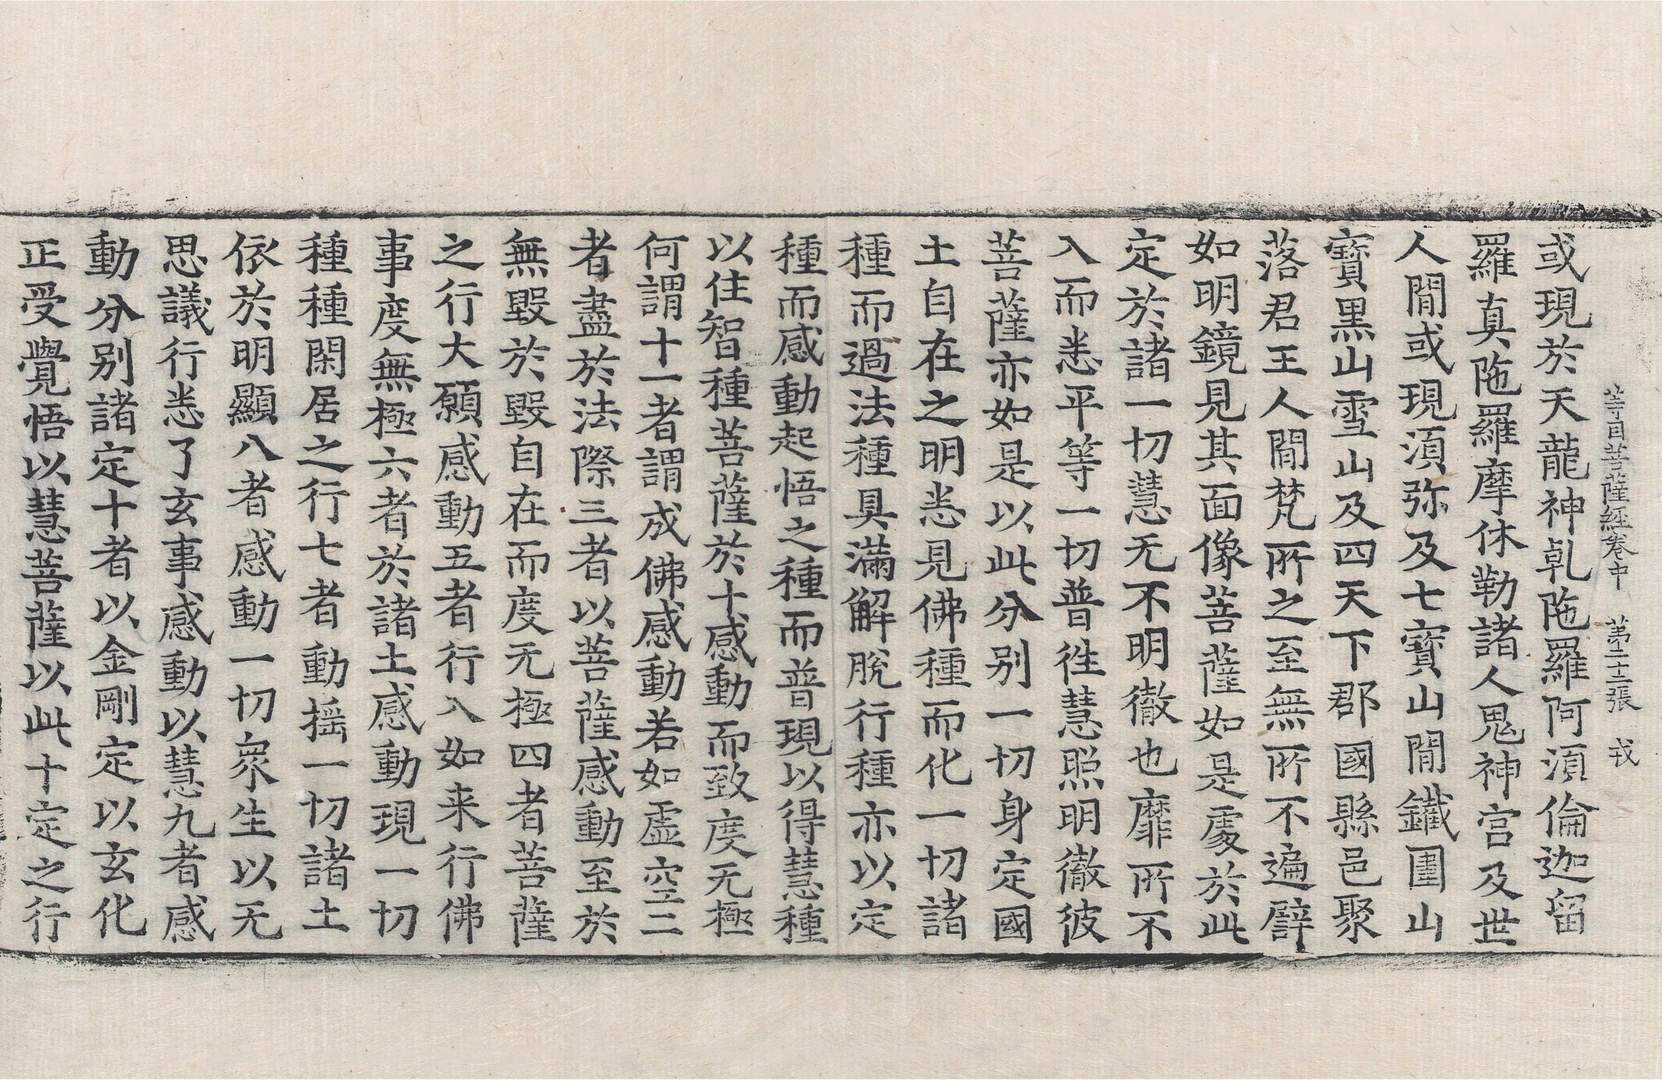 等目菩薩經卷中 第二十三張 戎
或現於天龍神乹陁羅阿湏倫迦留
羅真陁羅摩休勒諸人鬼神宫及世
人閒或現湏弥及七寳山閒鐵圍山
寳黒山雪山及四天下郡國縣邑聚
落君王人閒梵所之至無所不遍譬
如明鏡見其面像菩薩如是䖏於此
定於諸一切慧无不明徹也靡所不
入而悉平等一切普徃慧照明徹彼
菩薩亦如是以此分别一切身定國
土自在之明悉見佛種而化一切諸
種而過法種具滿解脫行種亦以定
種而感動起悟之種而普現以得慧種
以住智種菩薩於十感動而致度无極
何謂十一者謂成佛感動若如虚空二
者盡於法際三者以菩薩感動至於
無毀於毀自在而度无極四者菩薩
之行大願感動五者行入如来行佛
事度無極六者於諸土感動現一切
種種閑居之行七者動揺一切諸土
依於明顯八者感動一切衆生以无
思議行悉了玄事感動以慧九者感
動分别諸定十者以金剛定以玄化
正受覺悟以慧菩薩以此十定之行